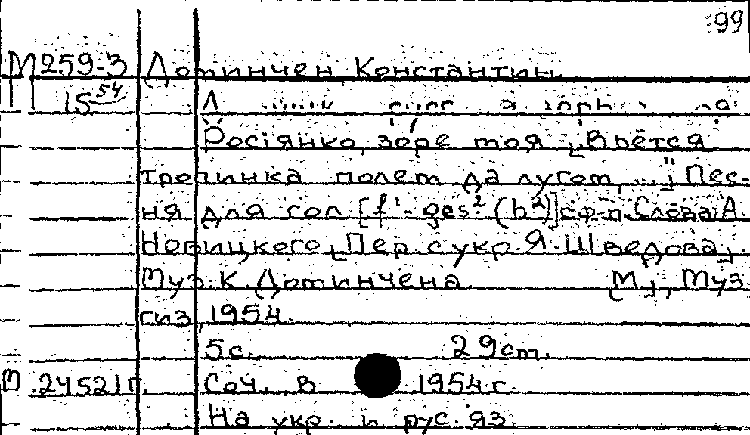 99
М 259-3 Доминчен, Константин
15 54
Росіянко, зоре моя. [Вьётся
тропинка полем да лугом,...] Пес-
ня для сопр. [f¹-ges² (b²)] с ф-п. Слова А.
Новицкого, Пер. с укр. Я. Шведова,
Муз. К. Доминчена [М.], Муз-
гиз, 1954.
5 с. 29 cm.
М 24521 г. Соч. в 1954 г.
На укр. и рус. яз